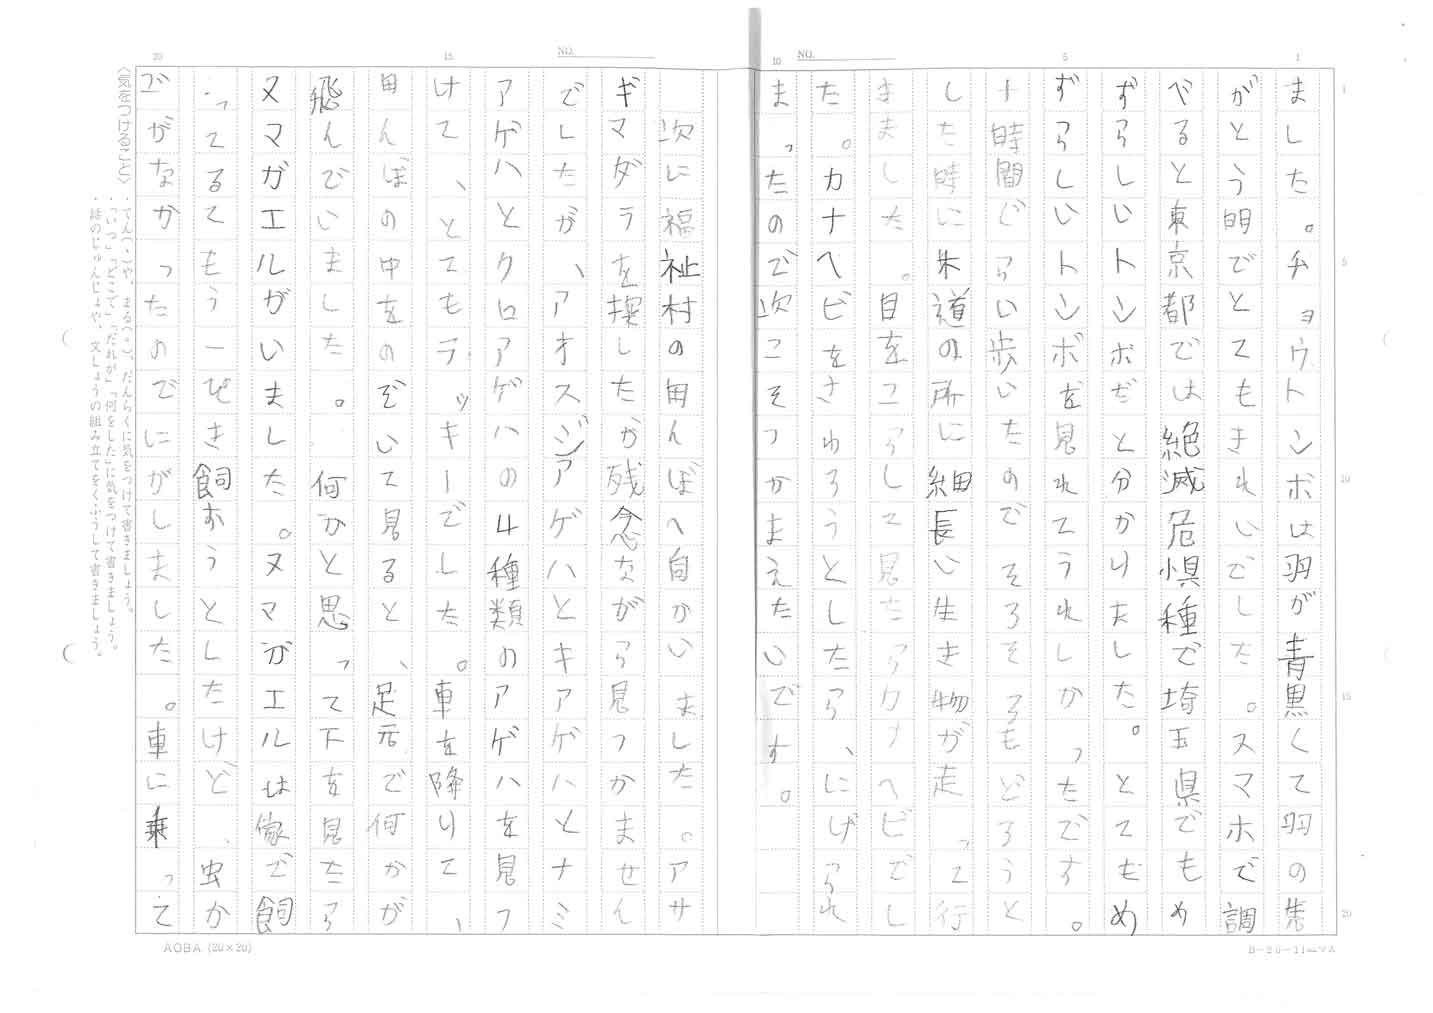 NO.
NO.
1
5
10
15
20
1
5
10
15
20
ました。チョウトンボは羽が青黒くて羽の先
がとう明でとてもきれいでした。スマホで調
べると東京都では絶滅危惧種で埼玉県でもめ
ずらしいトンボだと分かりました。とてもめ
ずらしいトンボを見れてうれしかったです。
十時間ぐらい歩いたのでそろそろもどろうと
した時に朱道の所に細長い生き物が走って行
きました。目をこらして見たらカナヘビでし
た。カナヘビをさわろうとしたら、にげられ
まったので次こそつかまえたいです。
次に福祉村の田んぼへ自かいました。アサ
ギマダラを探したか残念ながら見つかません
でしたが、アオスジアゲハとキアゲハとナミ
アゲハとクロアゲハの4種類のアゲハを見つ
けて、とてもラッキーでした。車を降りて、
田んぼの中をのぞいて見ると、足元で何かが
飛んでいました。何かと思って下を見たら
ヌマガエルがいました。ヌマガエルは家で飼
ってるてもう一ぴき飼おうとしたけど、虫か
ごがなかったのでにがしました。車に乗って
〈気をつけること〉
・てん(、)や、まる(。)、だんらくに気をつけて書きましょう。
・「いつ」「どこで」「だれが」「何をした」に気をつけて書きましょう。
・話のじゅんじょや、文しょうの組み立てをくふうして書きましょう。
AOBA (20×20)
B-20-11mmマス